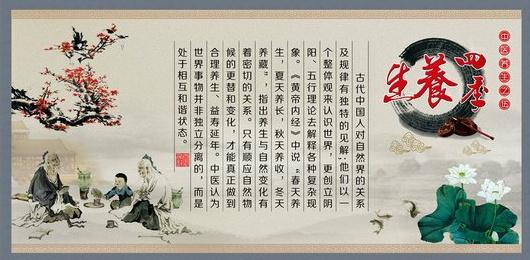 四季養生
中医养生之
古代中国人对自然界的关系
及规律有独特的见解;他们以一
个整体观来认识世界,更创立阴
阳、五行理论去解释各种复杂现
象。《黄帝内经》中说“春天养
生,夏天养长,秋天养收,冬天
养藏”,指出养生与自然变化有
着密切的关系。只有顺应自然物
候的更替和变化,才能真正做到
合理养生、益寿延年。中医认为
世界事物并非独立分离的,而是
处于相互和谐状态。